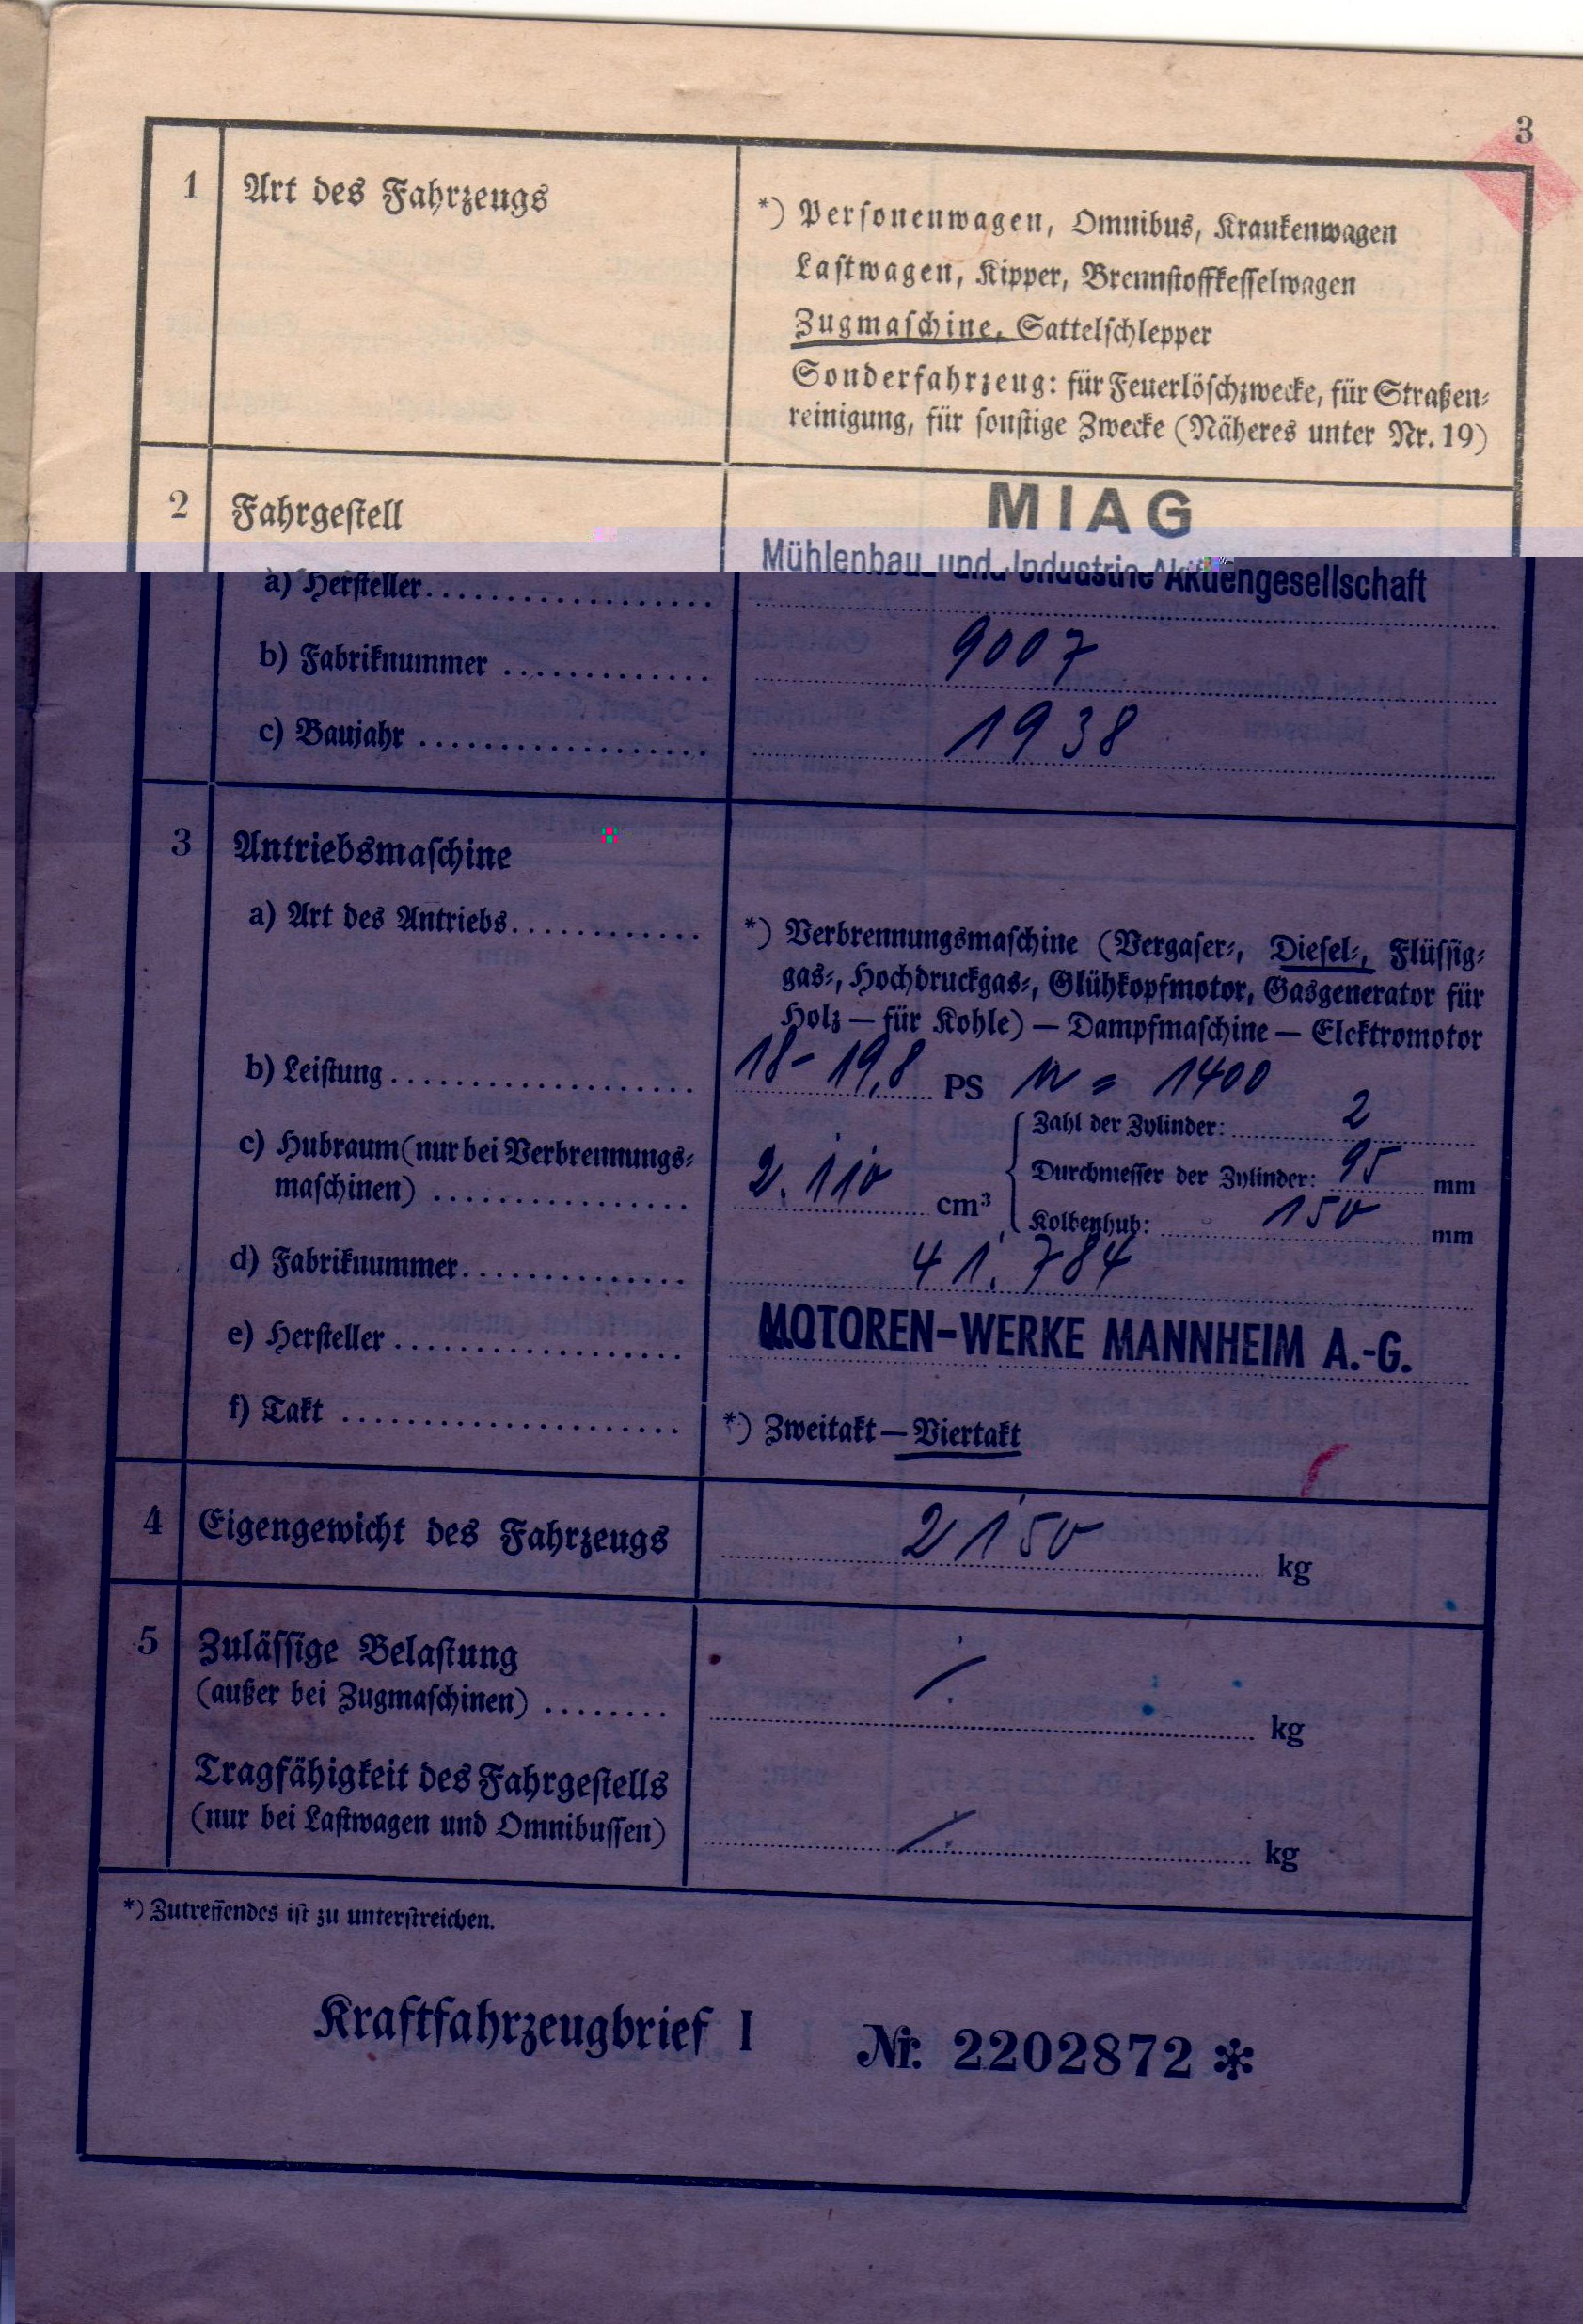 3
1 Art des Fahrzeugs
*) Personenwagen, Omnibus, Krankenwagen
Lastwagen, Kipper, Brennstoffkesselwagen
Zugmaschine, Sattelschlepper
Sonderfahrzeug: für Feuerlöschzwecke, für Straßen-
reinigung, für sonstige Zwecke (Näheres unter Nr. 19)
2 Fahrgestell
MIAG
Mühlenbau und Industrie Aktiengesellschaft
a) Hersteller
b) Fabriknummer 9007
c) Baujahr 1938
3 Antriebsmaschine
a) Art des Antriebs
*) Verbrennungsmaschine (Vergaser-, Diesel-, Flüssig-
gas-, Hochdruckgas-, Glühkopfmotor, Gasgenerator für
Holz — für Kohle) — Dampfmaschine — Elektromotor
b) Leistung 18 - 19,8 PS n = 1400
c) Hubraum (nur bei Verbrennungs-
maschinen) 2.110 cm³
Zahl der Zylinder: 2
Durchmesser der Zylinder: 95 mm
Kolbenhub: 150 mm
d) Fabriknummer 41.784
e) Hersteller MOTOREN-WERKE MANNHEIM A.-G.
f) Takt *) Zweitakt — Viertakt
4 Eigengewicht des Fahrzeugs 2150 kg
5 Zulässige Belastung
(außer bei Zugmaschinen) kg
Tragfähigkeit des Fahrgestells
(nur bei Lastwagen und Omnibussen) kg
*) Zutreffendes ist zu unterstreichen.
Kraftfahrzeugbrief I Nr. 2202872 *